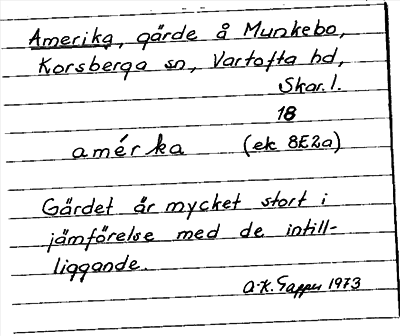 Amerika, gärde å Munkebo,
Korsberga sn, Vartofta hd,
Skar. l.
18
amérka (ek 8E2a)
Gärdet är mycket stort i
jämförelse med de intill-
liggande.
A-K. Tapper 1973